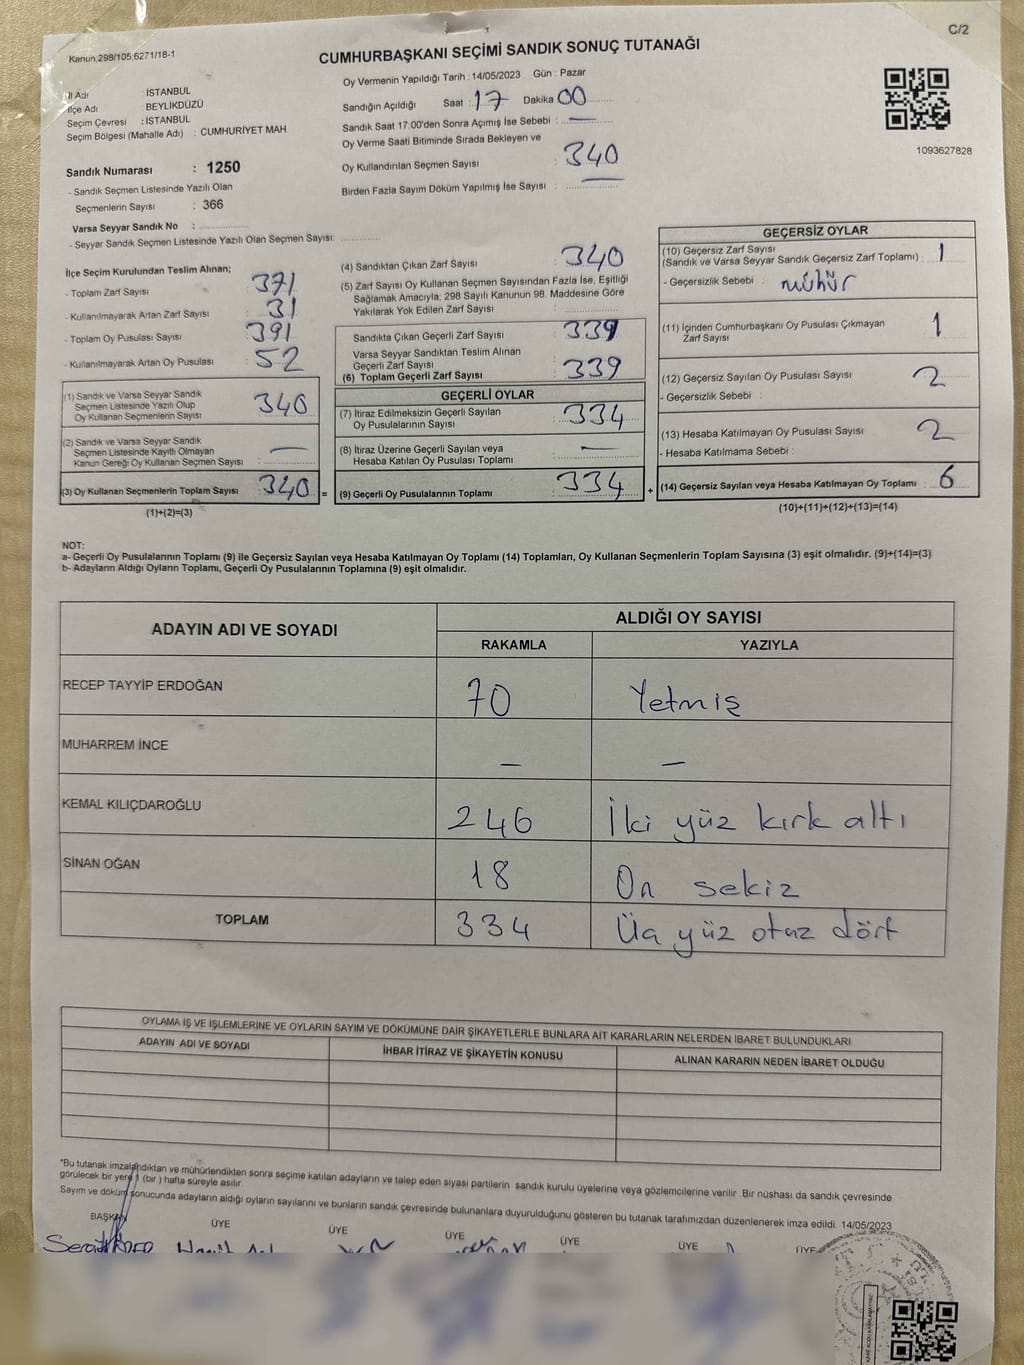 Kanun.298/105;6271/18-1
C/2
CUMHURBAŞKANI SEÇİMİ SANDIK SONUÇ TUTANAĞI
İl Adı : İSTANBUL
İlçe Adı : BEYLİKDÜZÜ
Seçim Çevresi : İSTANBUL
Seçim Bölgesi (Mahalle Adı) : CUMHURİYET MAH.
Sandık Numarası : 1250
- Sandık Seçmen Listesinde Yazılı Olan
Seçmenlerin Sayısı : 366
Varsa Seyyar Sandık No :
- Seyyar Sandık Seçmen Listesinde Yazılı Olan Seçmen Sayısı:
Oy Vermenin Yapıldığı Tarih : 14/05/2023 Gün : Pazar
Sandığın Açıldığı Saat : 17 Dakika 00
Sandık Saat 17:00'den Sonra Açımış İse Sebebi : —
Oy Verme Saati Bitiminde Sırada Bekleyen ve
Oy Kullandırılan Seçmen Sayısı : 340
Birden Fazla Sayım Döküm Yapılmış İse Sayısı :
1093627828
İlçe Seçim Kurulundan Teslim Alınan;
- Toplam Zarf Sayısı : 371
- Kullanılmayarak Artan Zarf Sayısı : 31
- Toplam Oy Pusulası Sayısı : 391
- Kullanılmayarak Artan Oy Pusulası : 52
(1) Sandık ve Varsa Seyyar Sandık
Seçmen Listesinde Yazılı Olup
Oy Kullanan Seçmenlerin Sayısı : 340
(2) Sandık ve Varsa Seyyar Sandık
Seçmen Listesinde Kayıtlı Olmayan
Kanun Gereği Oy Kullanan Seçmen Sayısı : —
(3) Oy Kullanan Seçmenlerin Toplam Sayısı : 340 =
(1)+(2)=(3)
(4) Sandıktan Çıkan Zarf Sayısı : 340
(5) Zarf Sayısı Oy Kullanan Seçmen Sayısından Fazla İse, Eşitliği
Sağlamak Amacıyla, 298 Sayılı Kanunun 98. Maddesine Göre
Yakılarak Yok Edilen Zarf Sayısı :
Sandıkta Çıkan Geçerli Zarf Sayısı : 339
Varsa Seyyar Sandıktan Teslim Alınan
Geçerli Zarf Sayısı :
(6) Toplam Geçerli Zarf Sayısı : 339
GEÇERLİ OYLAR
(7) İtiraz Edilmeksizin Geçerli Sayılan
Oy Pusulalarının Sayısı : 334
(8) İtiraz Üzerine Geçerli Sayılan veya
Hesaba Katılan Oy Pusulası Toplamı : —
(9) Geçerli Oy Pusulalarının Toplamı : 334 +
GEÇERSİZ OYLAR
(10) Geçersiz Zarf Sayısı
(Sandık ve Varsa Seyyar Sandık Geçersiz Zarf Toplamı) : 1
- Geçersizlik Sebebi : mühür
(11) İçinden Cumhurbaşkanı Oy Pusulası Çıkmayan
Zarf Sayısı : 1
(12) Geçersiz Sayılan Oy Pusulası Sayısı : 2
- Geçersizlik Sebebi :
(13) Hesaba Katılmayan Oy Pusulası Sayısı : 2
- Hesaba Katılmama Sebebi :
(14) Geçersiz Sayılan veya Hesaba Katılmayan Oy Toplamı : 6
(10)+(11)+(12)+(13)=(14)
NOT:
a- Geçerli Oy Pusulalarının Toplamı (9) ile Geçersiz Sayılan veya Hesaba Katılmayan Oy Toplamı (14) Toplamları, Oy Kullanan Seçmenlerin Toplam Sayısına (3) eşit olmalıdır. (9)+(14)=(3)
b- Adayların Aldığı Oyların Toplamı, Geçerli Oy Pusulalarının Toplamına (9) eşit olmalıdır.
ADAYIN ADI VE SOYADI
ALDIĞI OY SAYISI
RAKAMLA YAZIYLA
RECEP TAYYİP ERDOĞAN 70 Yetmiş
MUHARREM İNCE — —
KEMAL KILIÇDAROĞLU 246 İki yüz kırk altı
SİNAN OĞAN 18 On sekiz
TOPLAM 334 Üç yüz otuz dört
OYLAMA İŞ VE İŞLEMLERİNE VE OYLARIN SAYIM VE DÖKÜMÜNE DAİR ŞİKAYETLERLE BUNLARA AİT KARARLARIN NELERDEN İBARET BULUNDUKLARI
ADAYIN ADI VE SOYADI İHBAR İTİRAZ VE ŞİKAYETİN KONUSU ALINAN KARARIN NEDEN İBARET OLDUĞU
*Bu tutanak imzalandıktan ve mühürlendikten sonra seçime katılan adayların ve talep eden siyasi partilerin sandık kurulu üyelerine veya gözlemcilerine verilir .Bir nüshası da sandık çevresinde
görülecek bir yere 1 (bir ) hafta süreyle asılır
Sayım ve döküm sonucunda adayların aldığı oyların sayılarını ve bunların sandık çevresinde bulunanlara duyurulduğunu gösteren bu tutanak tarafımızdan düzenlenerek imza edildi. 14/05/2023
BAŞKAN ÜYE ÜYE ÜYE ÜYE ÜYE ÜYE